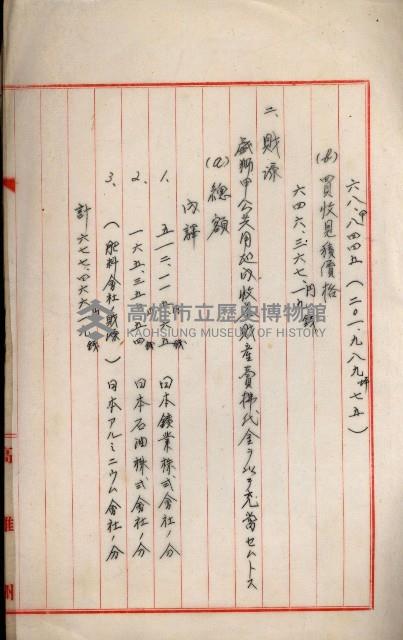 六八甲八四四五（二〇一.九八九坪七五）
(b) 買收見積價格
六四六.三六七円一九錢
二、財源
戲獅甲公共用地ノ收入財産賣拂代金ヲ以テ充當セムトス
(a) 總額
內譯
1、五一二.一一 日本鑛業株式會社ノ分
2、一六五.三五 日本石油株式會社ノ分
3、（肥料會社ノ財源）日本アルミニウム會社ノ分
計 六七七.四六六円 錢
高雄州
高雄市立歷史博物館
KAOHSIUNG MUSEUM OF HISTORY